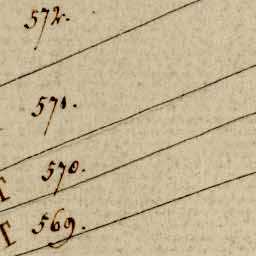 572.
571.
T 570.
T 569.